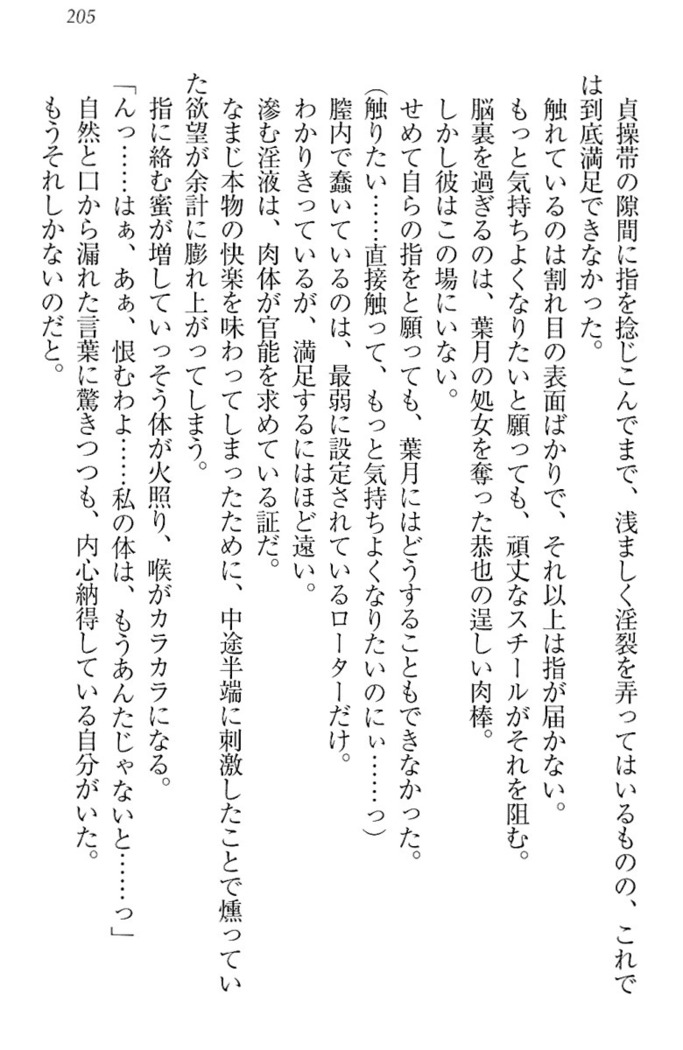 205
　貞操帯の隙間に指を捻じこんでまで、浅ましく淫裂を弄ってはいるものの、これで
は到底満足できなかった。
　触れているのは割れ目の表面ばかりで、それ以上は指が届かない。
　もっと気持ちよくなりたいと願っても、頑丈なスチールがそれを阻む。
　脳裏を過ぎるのは、葉月の処女を奪った恭也の逞しい肉棒。
　しかし彼はこの場にいない。
　せめて自らの指をと願っても、葉月にはどうすることもできなかった。
（触りたい……直接触って、もっと気持ちよくなりたいのにぃ……っ）
　膣内で蠢いているのは、最弱に設定されているローターだけ。
　わかりきっているが、満足するにはほど遠い。
　滲む淫液は、肉体が官能を求めている証だ。
　なまじ本物の快楽を味わってしまったために、中途半端に刺激したことで燻ってい
た欲望が余計に膨れ上がってしまう。
　指に絡む蜜が増していっそう体が火照り、喉がカラカラになる。
「んっ……はぁ、あぁ、恨むわよ……私の体は、もうあんたじゃないと……っ」
　自然と口から漏れた言葉に驚きつつも、内心納得している自分がいた。
　もうそれしかないのだと。